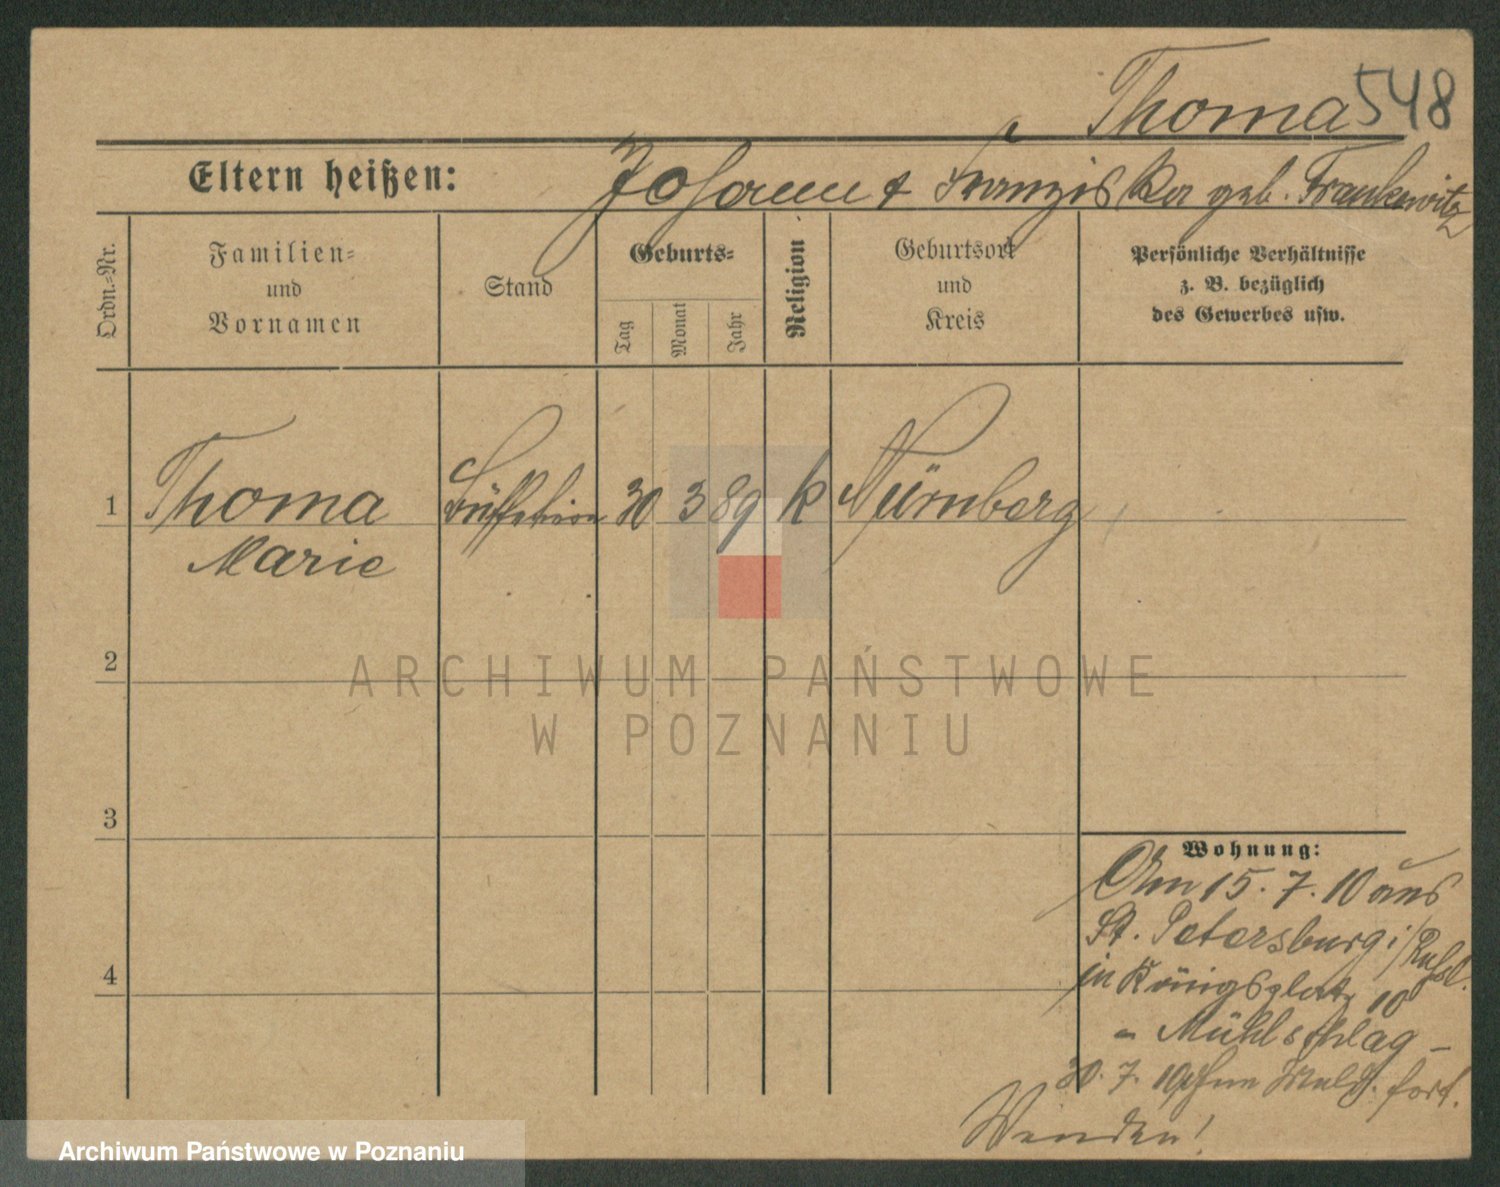 Thoma 548
Eltern heißen: Johann & Franziska geb. Frankewitz
Ordn.-Nr.
Familien-
und
Vornamen
Stand
Geburts-
Tag
Monat
Jahr
Religion
Geburtsort
und
Kreis
Persönliche Verhältnisse
z. B. bezüglich
des Gewerbes usw.
1 Thoma 30 3 89 k Nürnberg
Marie
2
3
4
ARCHIWUM PAŃSTWOWE
W POZNANIU
Wohnung:
Am 15. 7. 10 aus
St. Petersburg i/Rußl.
in Königsplatz 10
" Mühlschlag -
30. 7. 10 ohne Meldg. fort.
Wenden!
Archiwum Państwowe w Poznaniu